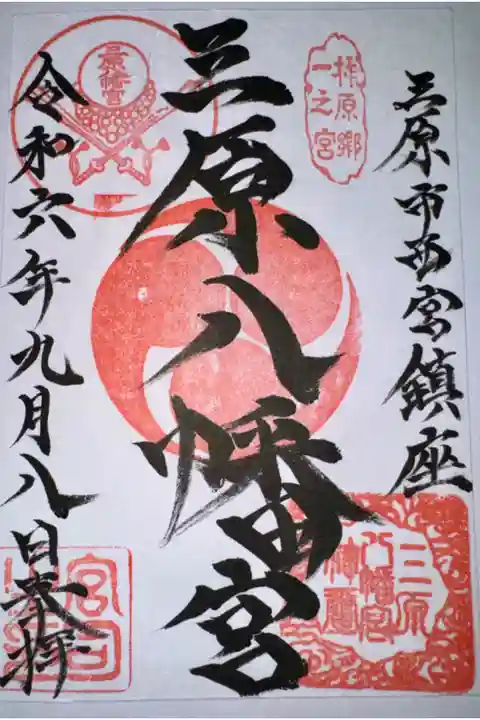 三原市西宮鎮座
柞原郷
一之宮
三原八幡宮
三原
八幡宮
神璽
令和六年九月八日奉拝
八幡宮
宮司